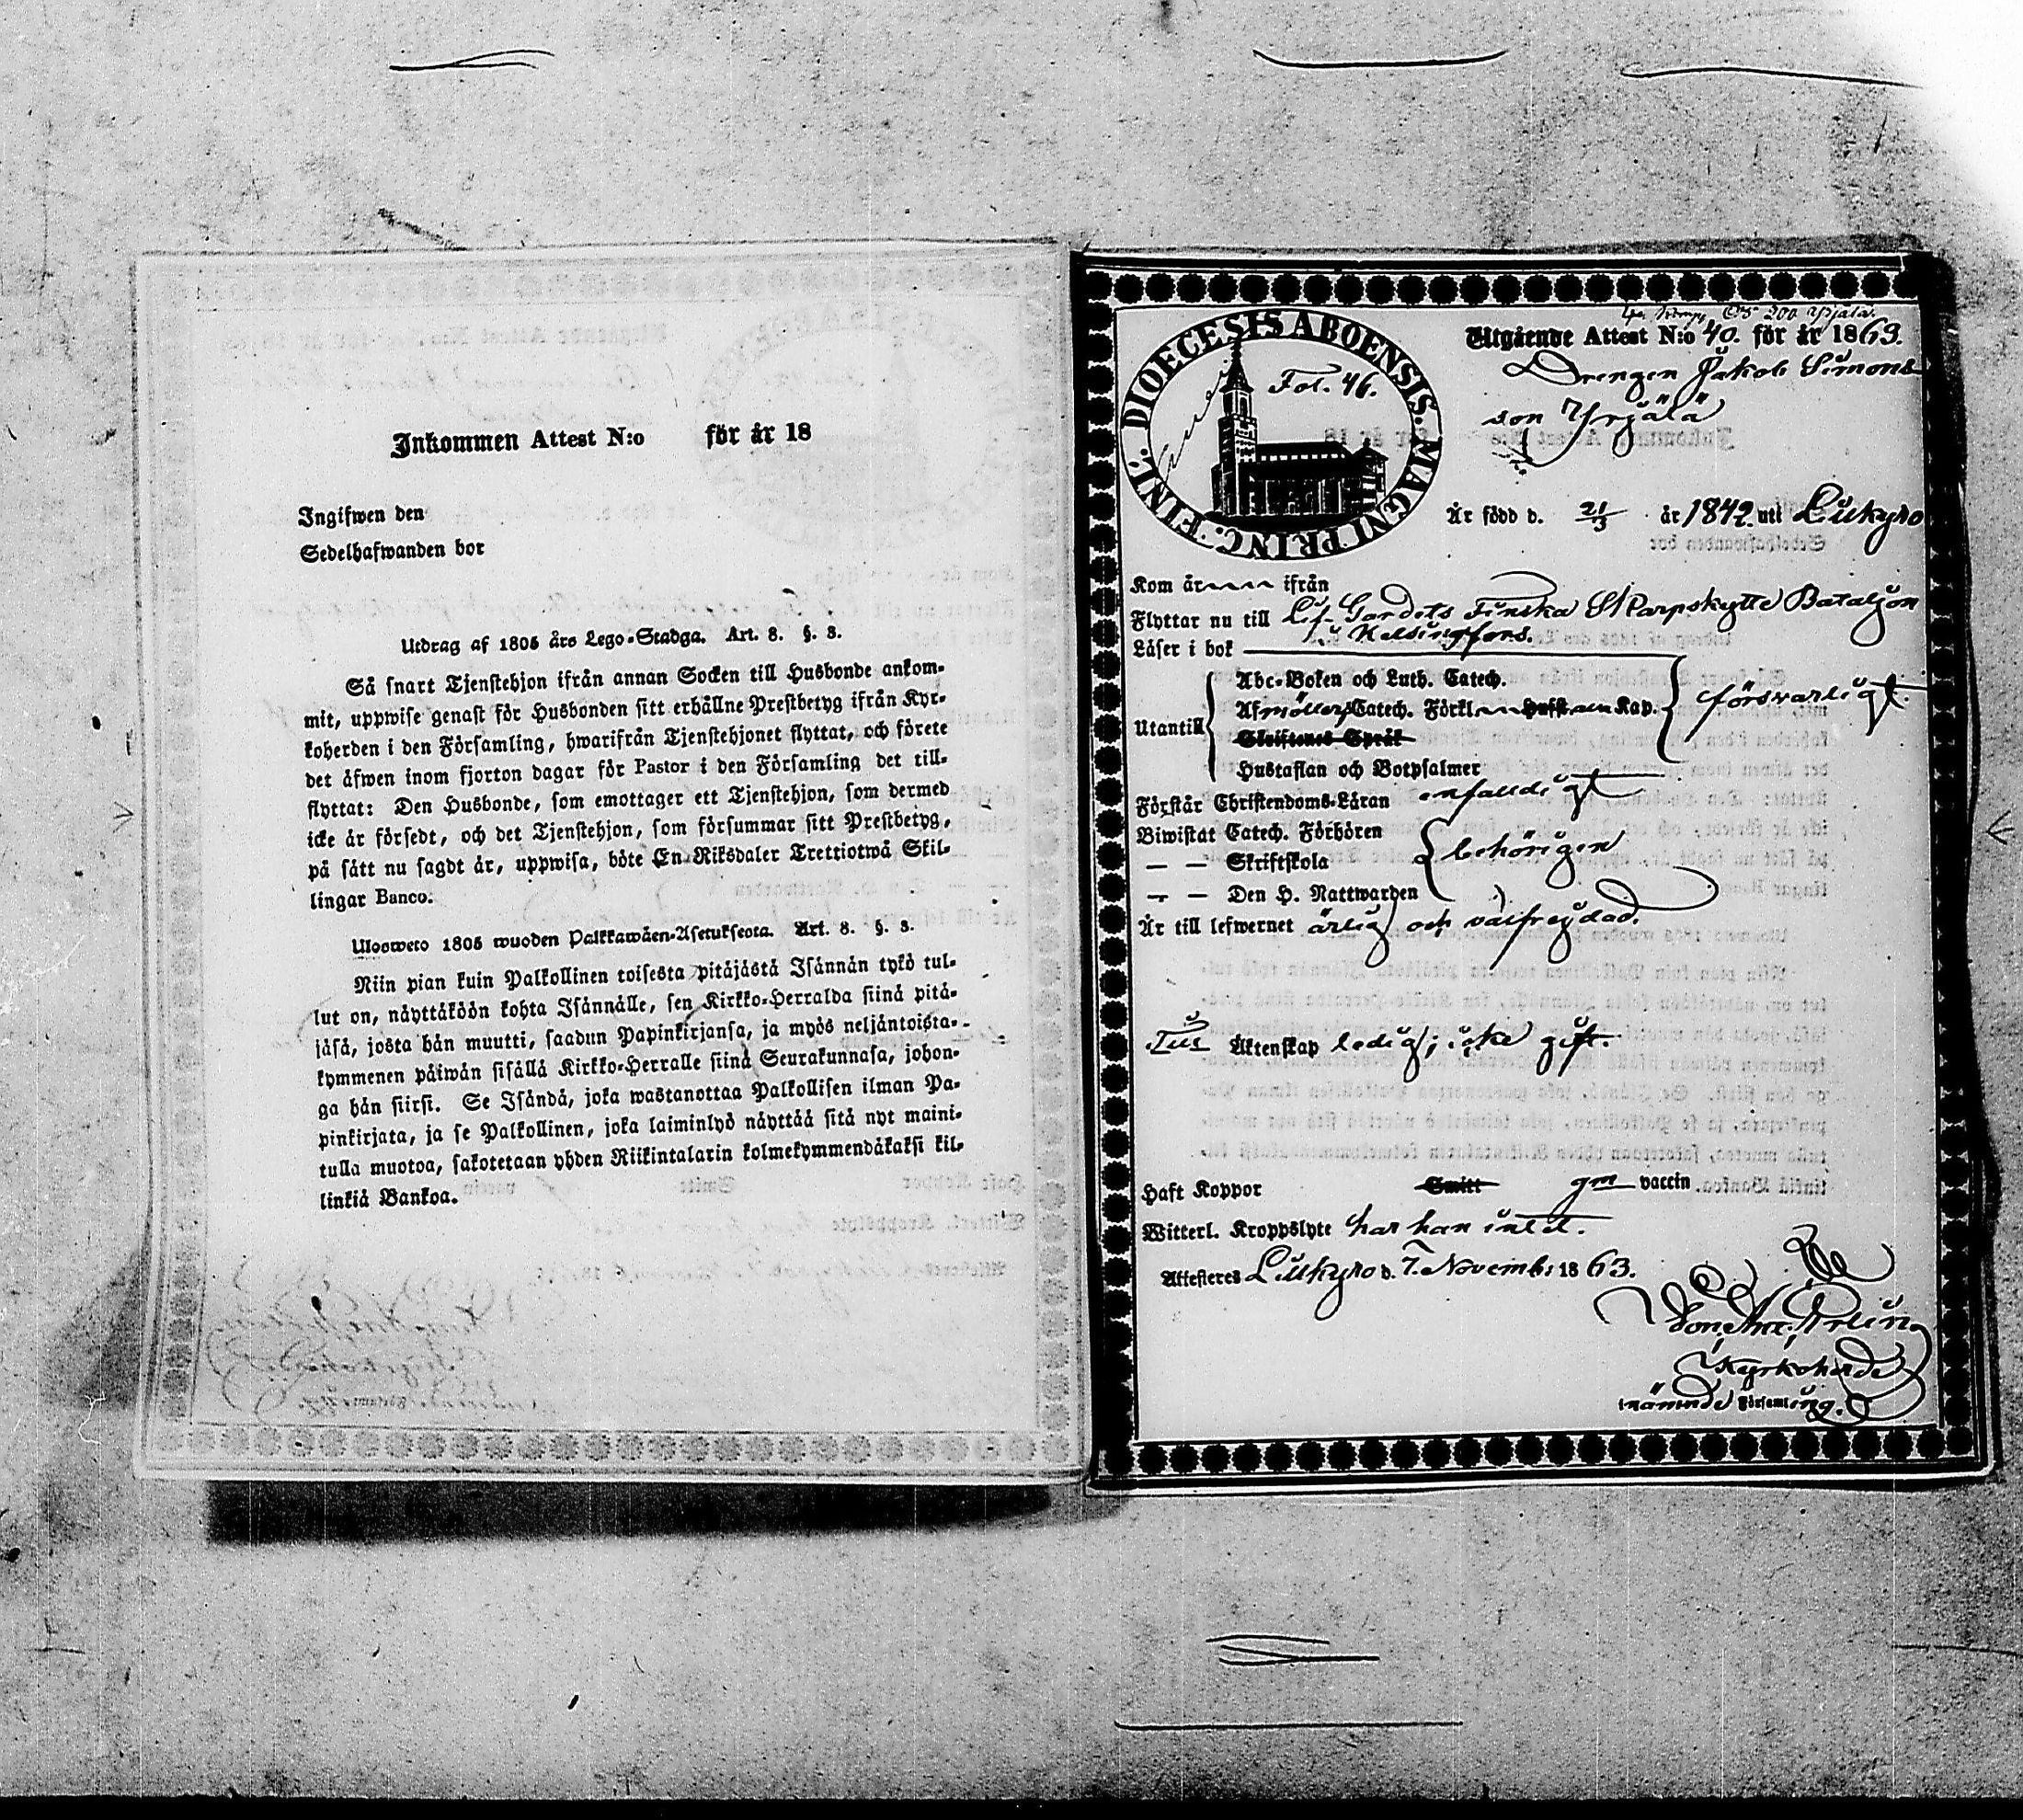 Inkommen Attest N:o för år 18
Ingifwen den
Sedelhafwanden bor
Utdrag af 1805 års Lego-Stadga. Art. 8. §. 3.
Så snart Tjenstehjon ifrån annan Socken till Husbonde ankom-
mit, uppwise genast för Husbonden sitt erhållne Prestbetyg ifrån Kyr-
koherden i den Församling, hwarifrån Tjenstehjonet flyttat, och förete
det äfwen inom fjorton dagar för Pastor i den Församling det till-
flyttat: Den Husbonde, som emottager ett Tjenstehjon, som dermed
icke är försedt, och det Tjenstehjon, som försummar sitt Prestbetyg,
på sätt nu sagdt är, uppwisa, böte En Riksdaler Trettiotwå Skil-
lingar Banco.
Ulosweto 1805 wuoden Palkkawäen-Asetuksesta. Art. 8. §. 3.
Niin pian kuin Palkollinen toisesta pitäjästä Isännän tykö tul-
lut on, näyttäköön kohta Isännälle, sen Kirkko-Herralda siinä pitä-
jäsä, josta hän muutti, saadun Papinkirjansa, ja myös neljäntoista-
kymmenen päiwän sisällä Kirkko-Herralle siinä Seurakunnasa, johon-
ga hän siirsi. Se Isändä, joka wastanottaa Palkollisen ilman Pa-
pinkirjata, ja se Palkollinen, joka laiminlyö näyttää sitä nyt maini-
tulla muotoa, sakotetaan yhden Riikintalarin kolmekymmendäkaksi kil-
linkiä Bankoa.
DIOECESIS ABOENSIS. MAGNI PRINC. FINL.
Fol. 46.
Utgående Attest N:o 40. för år 1863.
Drengen Jakob Simons-
son Yrjälä
Är född d. 21/3 år 1842 uti Lillkyro
Kom år ifrån
Flyttar nu till Lif-Gardets Finska Skarpskytte Bataljon
i Helsingfors.
Läser i bok
Abc-Boken och Luth. Catech.
Utantill Af Möllers Catech. Förkl. Kap. försvarligt.
Skriftenes Språk
Hustaflan och Botpsalmer
Förstår Christendoms-Läran enfalldigt
Biwistat Catech. Förhören
— — Skriftskola behörigen
— — Den H. Nattwarden
Är till lefwernet ärlig och välfrejdad.
Till Äktenskap ledig; icke gift.
Haft Koppor Smitt gm vaccin.
Witterl. Kroppslyte har han intet.
Attesteres Lillkyro d. 7. Novemb: 1863.
Kyrkoherde
i nämnde Församling.